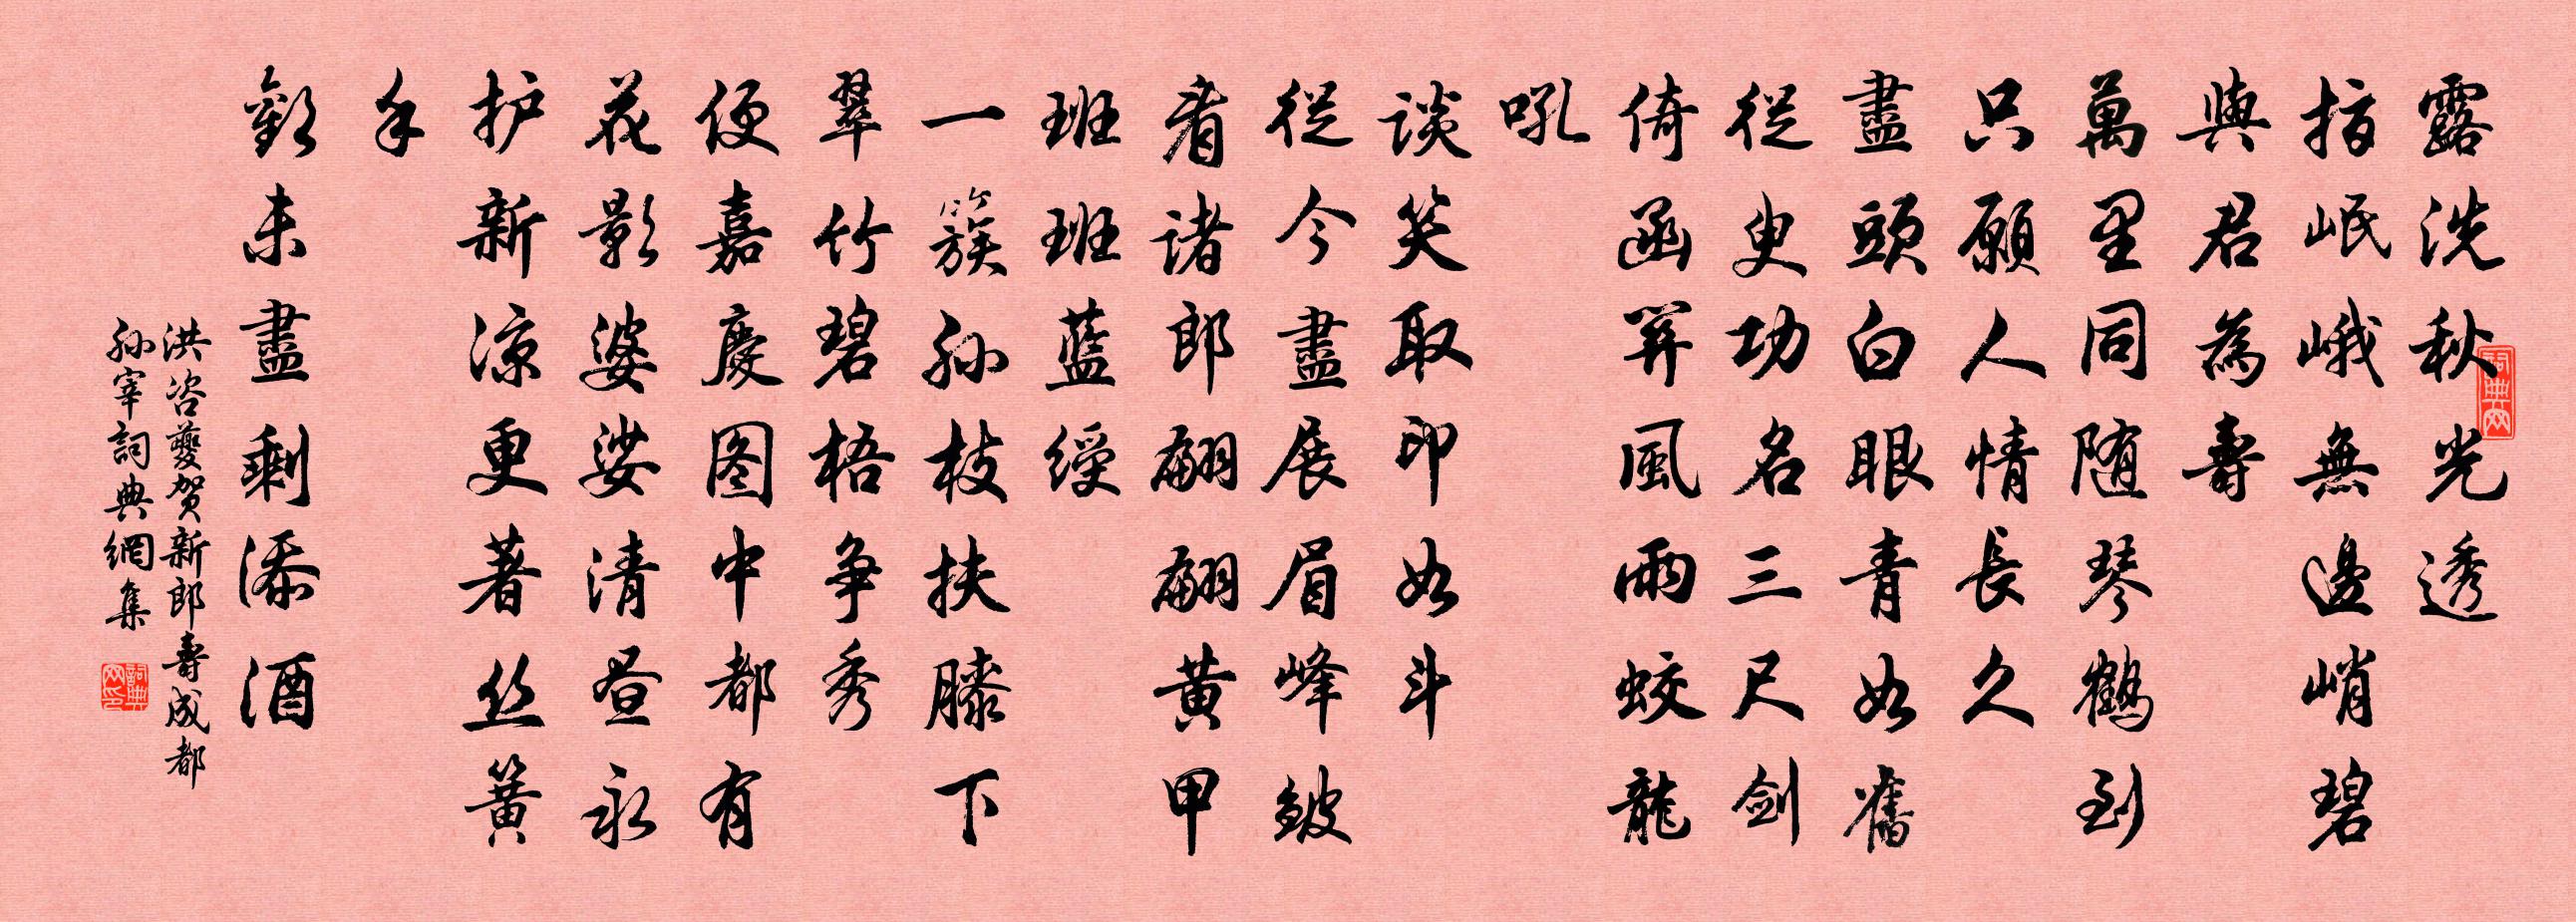 露洗秋光透
指岷峨無邊峭碧
與君為壽
萬里同随琴鶴到
只願人情長久
盡頭白眼青如舊
從臾功名三尺剑
倚函關風雨蛟龍
吼
談笑取印如斗
從今盡展眉峰皺
看諸郎翩翩黄甲
班班藍綬
一簇孙枝扶膝下
翠竹碧梧争秀
便嘉慶图中都有
花影婆娑清昼永
护新凉更著丝簧
手
歡未盡剩添酒
洪咨夔贺新郎壽成都
孙宰詞典網集
詞典网
詞典网印